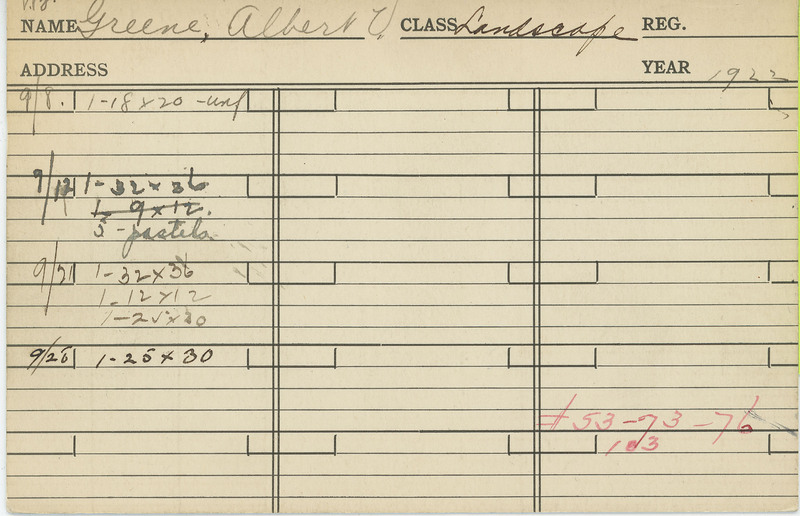 NAME Greene, Albert V. CLASS Landscape REG.
ADDRESS YEAR 1922
9/8. 1-18x20 -unf
9/12 1-32x36
1-9x12.
5-pastels
9/21 1-32x36
1-12x12
1-25x30
9/25 1-25x30
#53-73-76
103